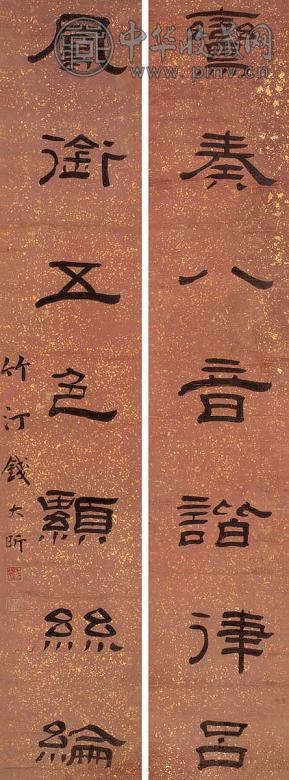 鸞奏八音諧律呂
鳳銜五色顯絲綸
竹汀錢大昕
中华收藏网
www.pmv.cn